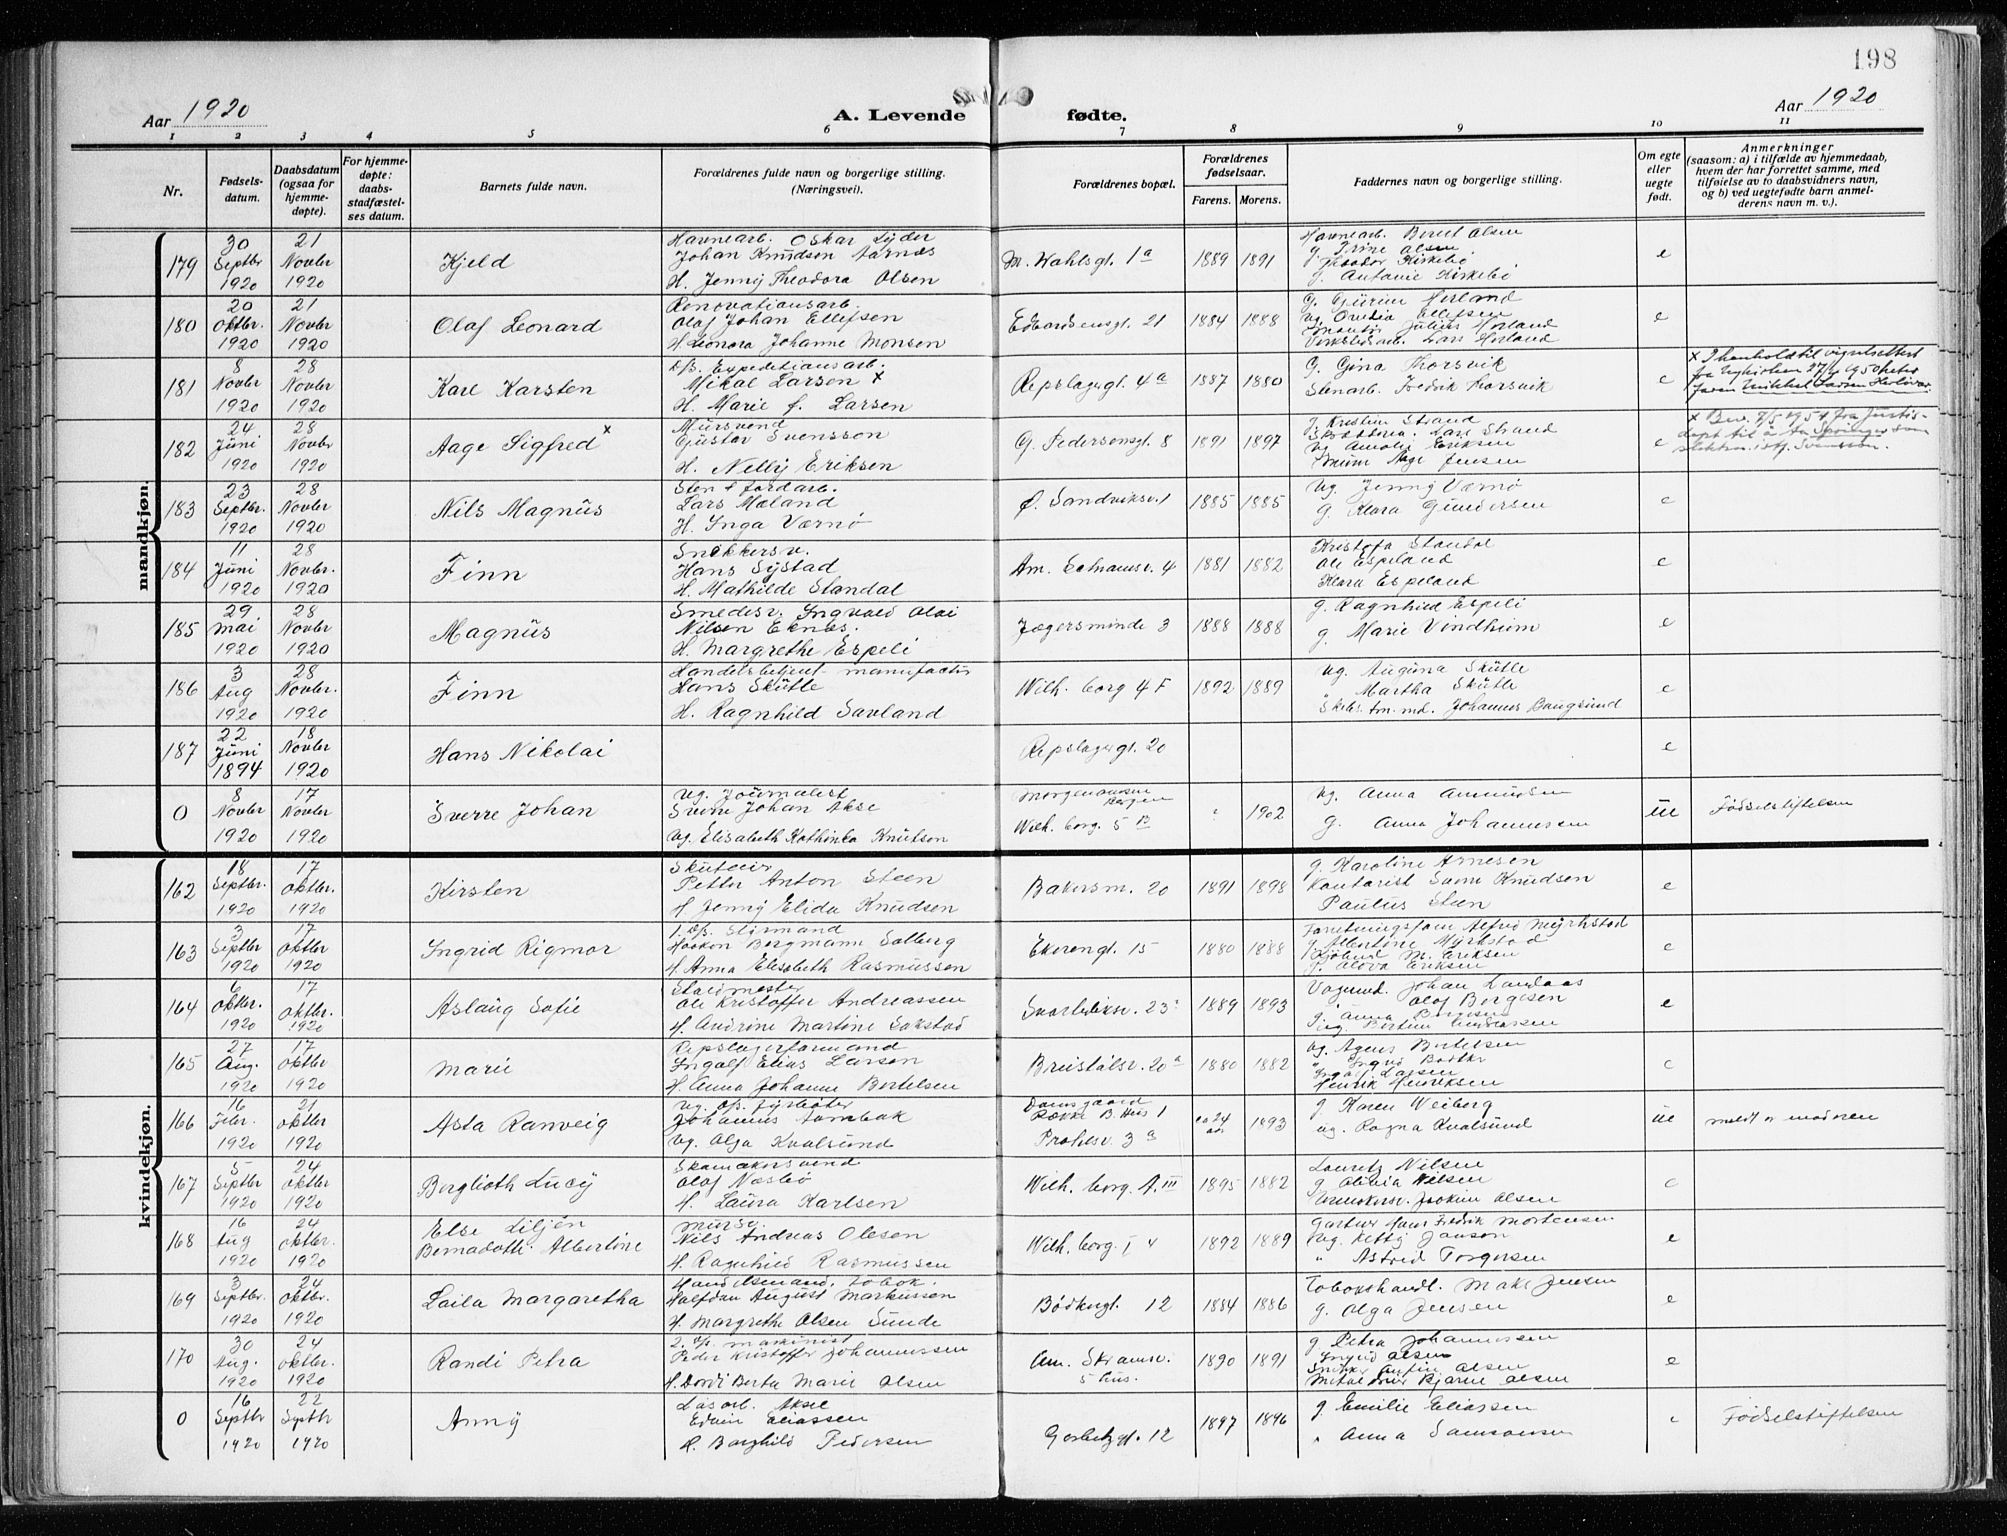 198
Aar 1920
A. Levende fødte.
Aar 1920
1 2 3 4 5 6 7 8 9 10 11
Nr.
Fødsels-
datum.
Daabsdatum
(ogsaa for
hjemme-
døpte).
For hjemme-
døpte:
daabs-
stadfæstel-
ses datum.
Barnets fulde navn.
Forældrenes fulde navn og borgerlige stilling.
(Næringsvei).
Forældrenes bopæl.
Forældrenes
fødselsaar.
Farens. Morens.
Faddernes navn og borgerlige stilling.
Om egte
eller
uegte
født.
Anmerkninger
(saasom: a) i tilfælde av hjemmedaab,
hvem der har forrettet samme, med
tilføielse av to daabsvidners navn,
og b) ved uegtefødte barn anmel-
derens navn m. v.).
mandkjøn.
179
30
Septbr
1920
21
Novbr
1920
Kjeld
Havnearb. Oskar Lyder
Johan Knudsen Aarnæs
H. Jenny Theodora Olsen
M. Wahlsgt. 1a
1889 1891
Havnearb. Berent Olsen
g. Trine Olsen
Theodor Kirkebø
g. Antonie Kirkebø
e
180
20
Oktbr.
1920
21
Novbr
1920
Olaf Leonard
Renovationsarb.
Olaf Johan Ellefsen
H. Leonora Johanne Monsen
Edvardsensgt. 21
1884 1888
g. Gurine Horland
ug. Ovidia Ellefsen
Montør Julius Horland
Verkstedsarb. Lars Horland
e
181
8
Novbr
1920
28
Novbr
1920
Karl Karsten
Expeditionsarb.
Mikal Larsen x
H. Marie f. Larsen
Repslagergt. 4a
1887 1880
g. Gina Thorsvik
Stenarb. Fredrik Thorsvik
e
x I henhold til vigselsattest
182
24
Juni
1920
28
Novbr
1920
Aage Sigfred x
Mursvend
Gustav Svensson
H. Nelly Eriksen
G. Pedersensgt. 8
1891 1897
g. Kristin Strand
Lars Strand
ug. Amalie Eriksen
Aage Jensen
e
183
23
Septbr.
1920
28
Novbr
1920
Nils Magnus
Sten & jordarb.
Lars Mæland
H. Inga Værnø
Ø. Sandviksv. 1
1885 1885
ug. Jenny Værnø
g. Klara Gundersen
e
184
11
Juni
1920
28
Novbr.
1920
Finn
Snekkersv.
Hans Systad
H. Mathilde Standal
Am. 4
1881 1882
Kristofa Standal
Ole Espeland
Klara Espeland
e
185
29
Mai
1920
28
Novbr
1920
Magnus
Smedesv. Ingvald Olai
Nilsen Eknæs.
H. Margrethe Espeli
Jægersminde 3
1888 1888
g. Ragnhild Espeli
g. Marie Vindheim
e
186
3
Aug
1920
28
Novbr.
1920
Finn
Handelsbetjent - manufactur
Hans Skutle
H. Ragnhild Savland
Wilh. borg 4 F
1892 1889
ug. Auguna Skutle
" Martha Skutle
Johannes Bangsund
e
187
22
Juni
1894
18
Novbr
1920
Hans Nikolai
Repslagergt. 20
e
0
8
Novbr
1920
17
Novbr
1920
Sverre Johan
ug. Journalist
Svein Johan Aase
ug. Elisabeth Kathinka Knutson
Morgenavisen
Bergen
Wilh. borg. 5 B
1902
ug. Anna Amundsen
g. Anna Johannessen
ue
Fødselstiftelsen
kvindekjøn.
162
18
Septbr.
1920
17
Oktbr.
1920
Kirsten
Skuteeier
Petter Anton Steen
H. Jenny Elida Knudsen
Bakersm. 20
1891 1898
g. Karoline Arnesen
Kontorist Sam Knudsen
Paulus Steen
e
163
3
Septbr
1920
17
Oktbr
1920
Ingrid Rigmor
1. o/s. Stirmand
Haakon Bergmann Solberg
H. Anna Elisabeth Rasmussen
Ekerengt. 15
1880 1888
Alfred Myrkstad
g. Albertine Myrkstad
M. Eriksen
g. Alova Eriksen
e
164
6
Oktbr.
1920
17
Oktbr.
1920
Aslaug Sofie
Staldmester
Ole Kristoffer Andreassen
H. Andrine Martine Sokstad
Svartediksv. 23a
1889 1893
Johan Landaas
Olaf Borgesen
g. Anna Borgesen
ug. Bertine Andreassen
e
165
27
Aug.
1920
17
Oktbr
1920
Marie
Repslagerformand
Ingolf Elias Larsen
H. Anna Johanne Bertelsen
Breistølsv. 20a
1880 1882
ug. Agnes Bertelsen
" Ingrid Bødtker
Ingolf Larsen
Henrik Henriksen
e
166
16
Febr.
1920
21
Oktbr
1920
Asta Ranveig
ug. o/s. fyrbøter
Johannes Aambak
ug. Olga Kvalsund
Damsgaard
Række B. Hus 1
Prahlsv. 3a
ca 24
aar
1893
g. Karen Weiberg
ug. Ragna Kvalsund
ue
meldt av moderen
167
5
Septbr
1920
24
Oktbr
1920
Berglioth Lucy
Skomakersvend
Olaf Næsbø
H. Laura Karlsen
Wilh. borg. A. III
1895 1882
Lauritz Nilsen
g. Olivia Nilsen
Joakim Olsen
e
168
16
Aug
1920
24
Oktbr.
1920
Else Liljön
Bernadotti Albertine
Mursv.
Nils Andreas Olesen
H. Ragnhild Rasmussen
Wilh. borg. I 4
1892 1889
Gartner Hans Fredrik Mortensen
ug. Ketty Janson
" Astrid Torgersen
e
169
3
Septbr.
1920
24
Oktbr.
1920
Laila Margaretha
Handelsmand, tobak.
Halfdan August Markussen
H. Margrethe Olsen Sunde
Bødkergt. 12
1884 1886
Tobakshandl. Max Jensen
g. Olga Jensen
e
170
30
Aug.
1920
24
Oktbr.
1920
Randi Petra
2. o/s. maskinist
Peder Kristoffer Johannessen
H. Dordi Berta Marie Olsen
Am. Skramsv.
5 hus.
1890 1891
g. Petra Johannessen
Ingrid Olsen
Olsen
Bjarne Olsen
e
0
16
Septbr
1920
22
Septbr
1920
Anny
Løsarb. Aksel
Edvin Eliassen
H. Borghild Pedersen
12
1897 1896
g. Emilie Eliassen
" Anna Samsonsen
e
Fødselstiftelsen